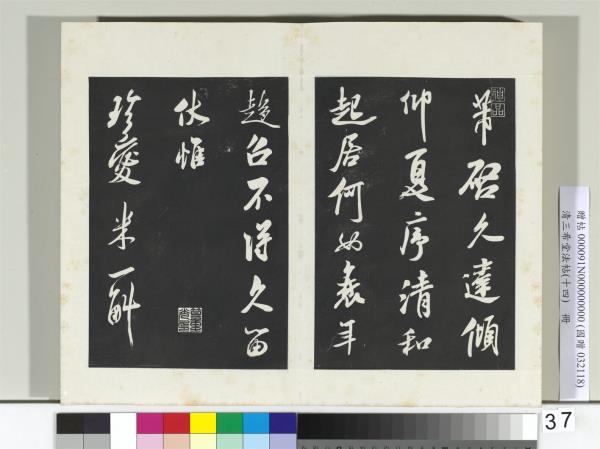 芾啓久違傾
仰夏序清和
起居何如衰年
趍召不得久留
伏惟
珍愛米一斛
贈帖 000091N000000000 (國贈 032118)
清三希堂法帖(十四) 冊
37